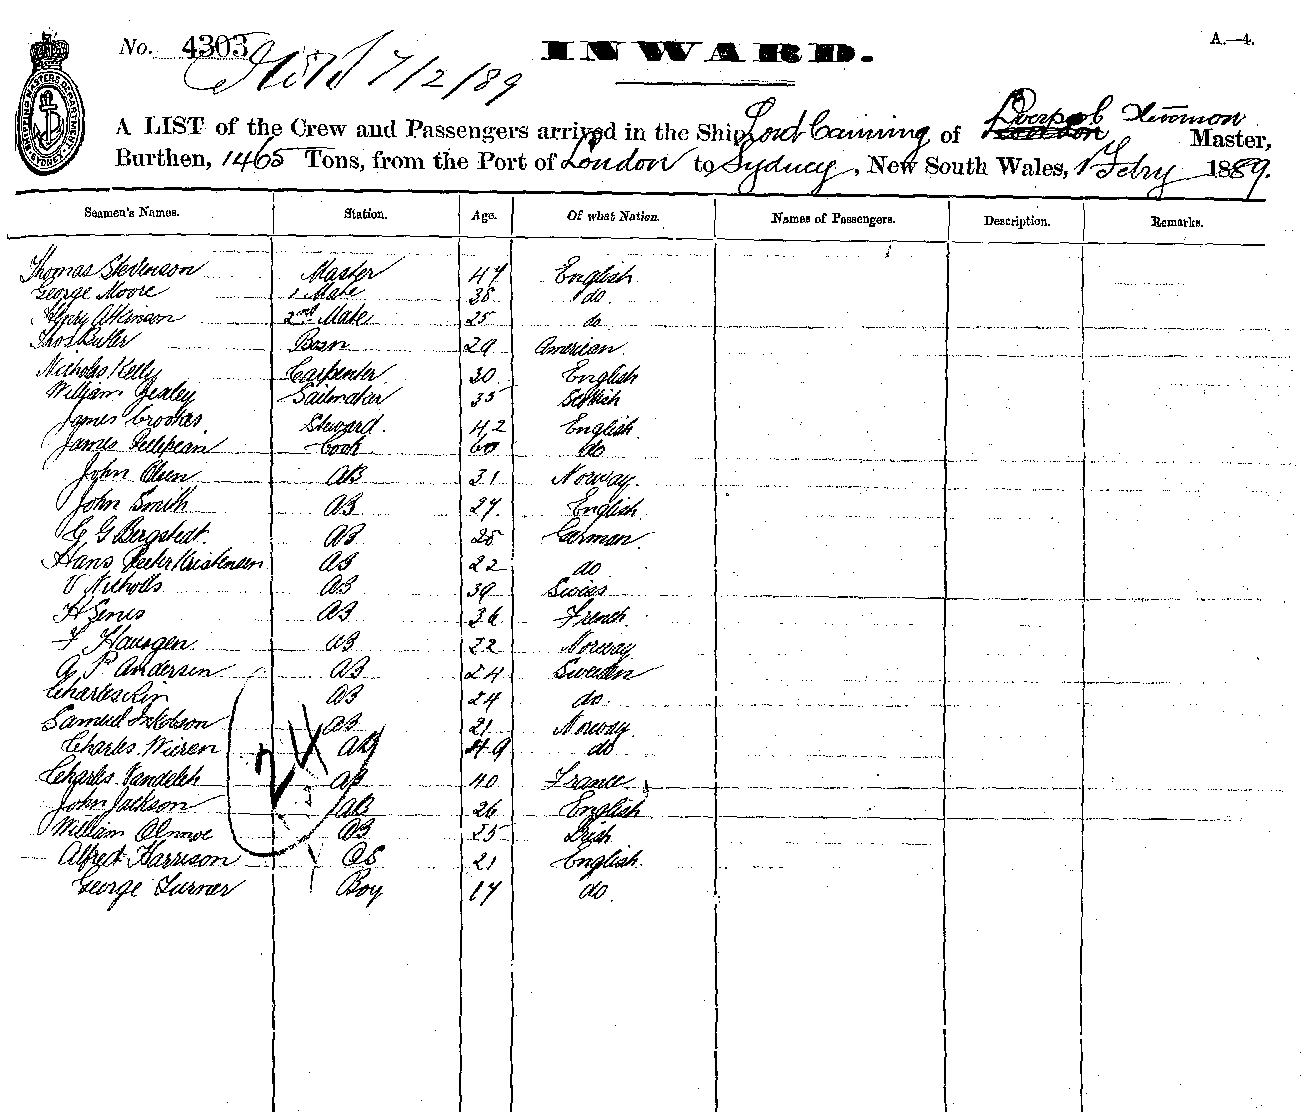 No. 4303
INWARD.
A.—4.
7/2/89
SHIPPING MASTERS DEPARTMENT SYDNEY
A LIST of the Crew and Passengers arrived in the Ship Lord Canning of Liverpool London Master,
Burthen, 1465 Tons, from the Port of London to Sydney, New South Wales, Febry 1889.
Seamen's Names. Station. Age. Of what Nation. Names of Passengers. Description. Remarks.
Thomas Stevenson Master 47 English
George Moore 1 Mate 38 do
Henry Atkinson 2nd Mate 25 do
Thos Butler Bosn 29 American
Nicholas Kelly Carpenter 30 English
William Zealey Sailmaker 35 Scottish
James Crookes Steward 42 English
James Cook 60 do
John Olsen AB 31 Norway
John Smith AB 27 English
G Bergstedt AB 28 German
Hans Peeter Kristensen AB 22 do
Nicholls AB 39 Swiss
H Senis AB 36 French
F Haurgen AB 22 Norway
A P Andersen AB 24 Sweden
Charles AB 24 do
Samuel AB 21 Norway
Charles Wieren AB 49 do
Charles AB 40 France
John Jackson AB 26 English
William AB 25 Irish
Alfred Harrison OS 21 English
George Turner Boy 17 do
24